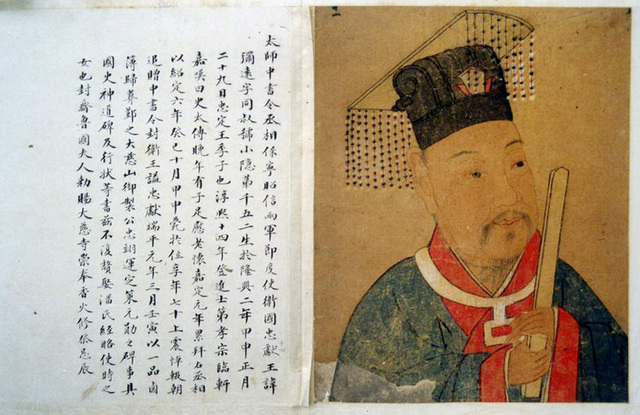 太師中書令丞相保寧昭信兩軍節度使衛國忠獻王諱
彌遠字同叔號小隱第千五二生於隆興二年甲申正月
二十九日忠定王季子也淳熙十四年登進士第孝宗臨軒
嘉嘆曰史太傅晚年有子足慰老懷嘉定元年累拜右丞相
以紹定六年癸巳十月甲申薨於位享年七十上震悼輟朝
追贈中書令封衛王諡忠獻端平元年三月壬寅以一品鹵
簿歸葬鄞之大慈山御製公忠翊運定策元勛之碑事具
國史神道碑及行狀等書茲不復贅娶潘氏經略使時之
女也封齊魯國夫人勅賜大慈寺崇奉香火修祭忌辰